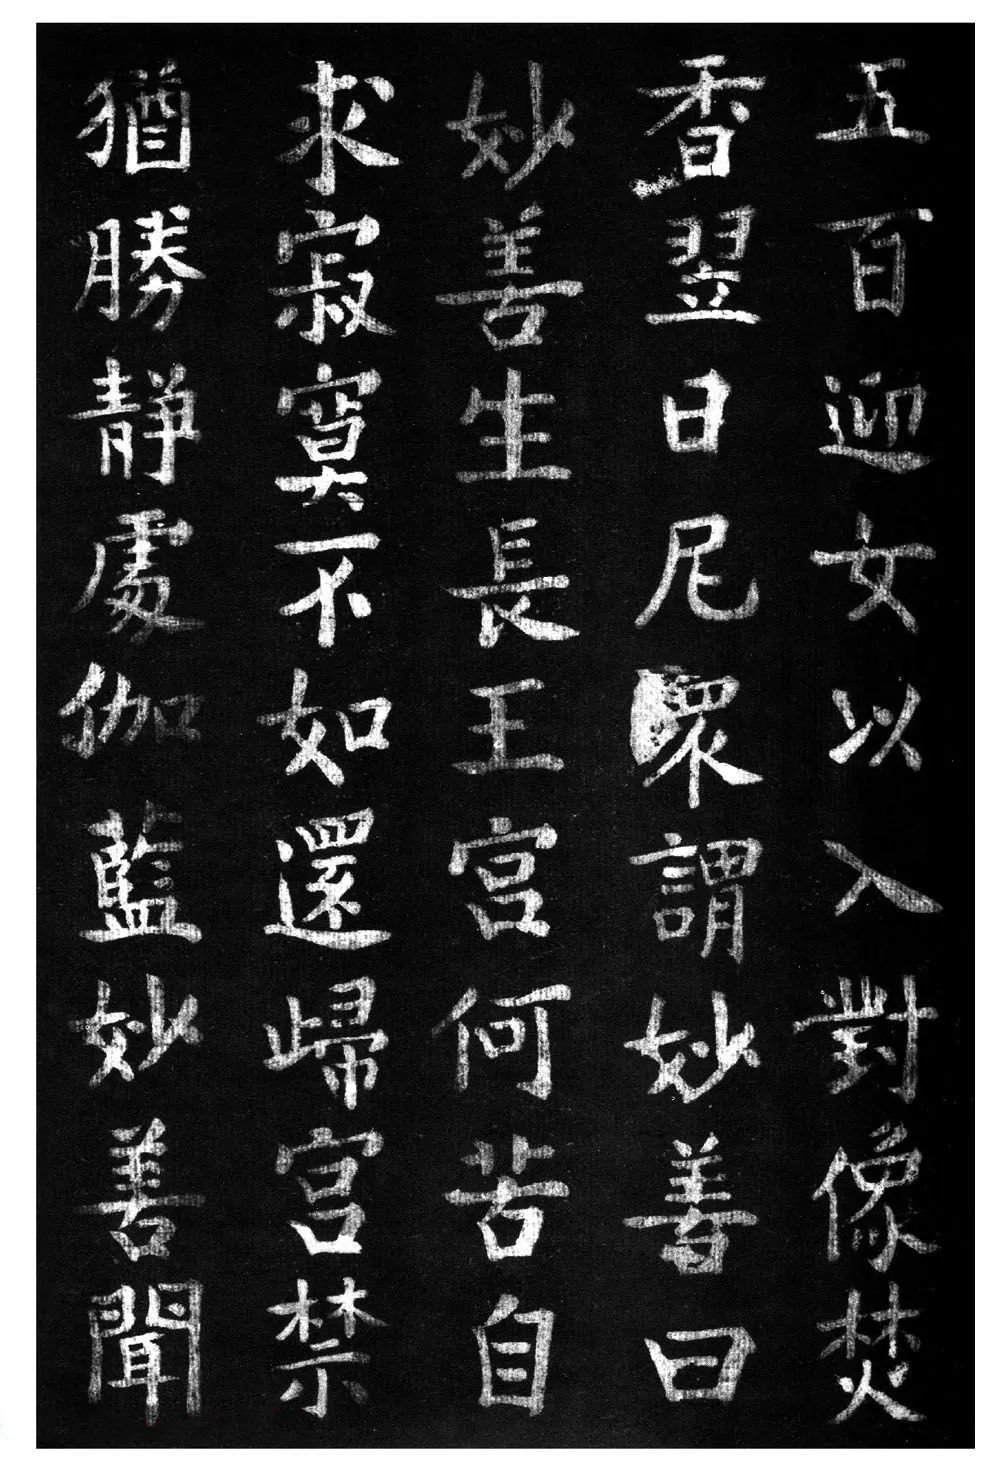 五百迎女以入對像焚
香翌日尼眾謂妙善曰
妙善生長王宮何苦自
求寂寞不如還歸宮禁
猶勝靜處伽藍妙善聞